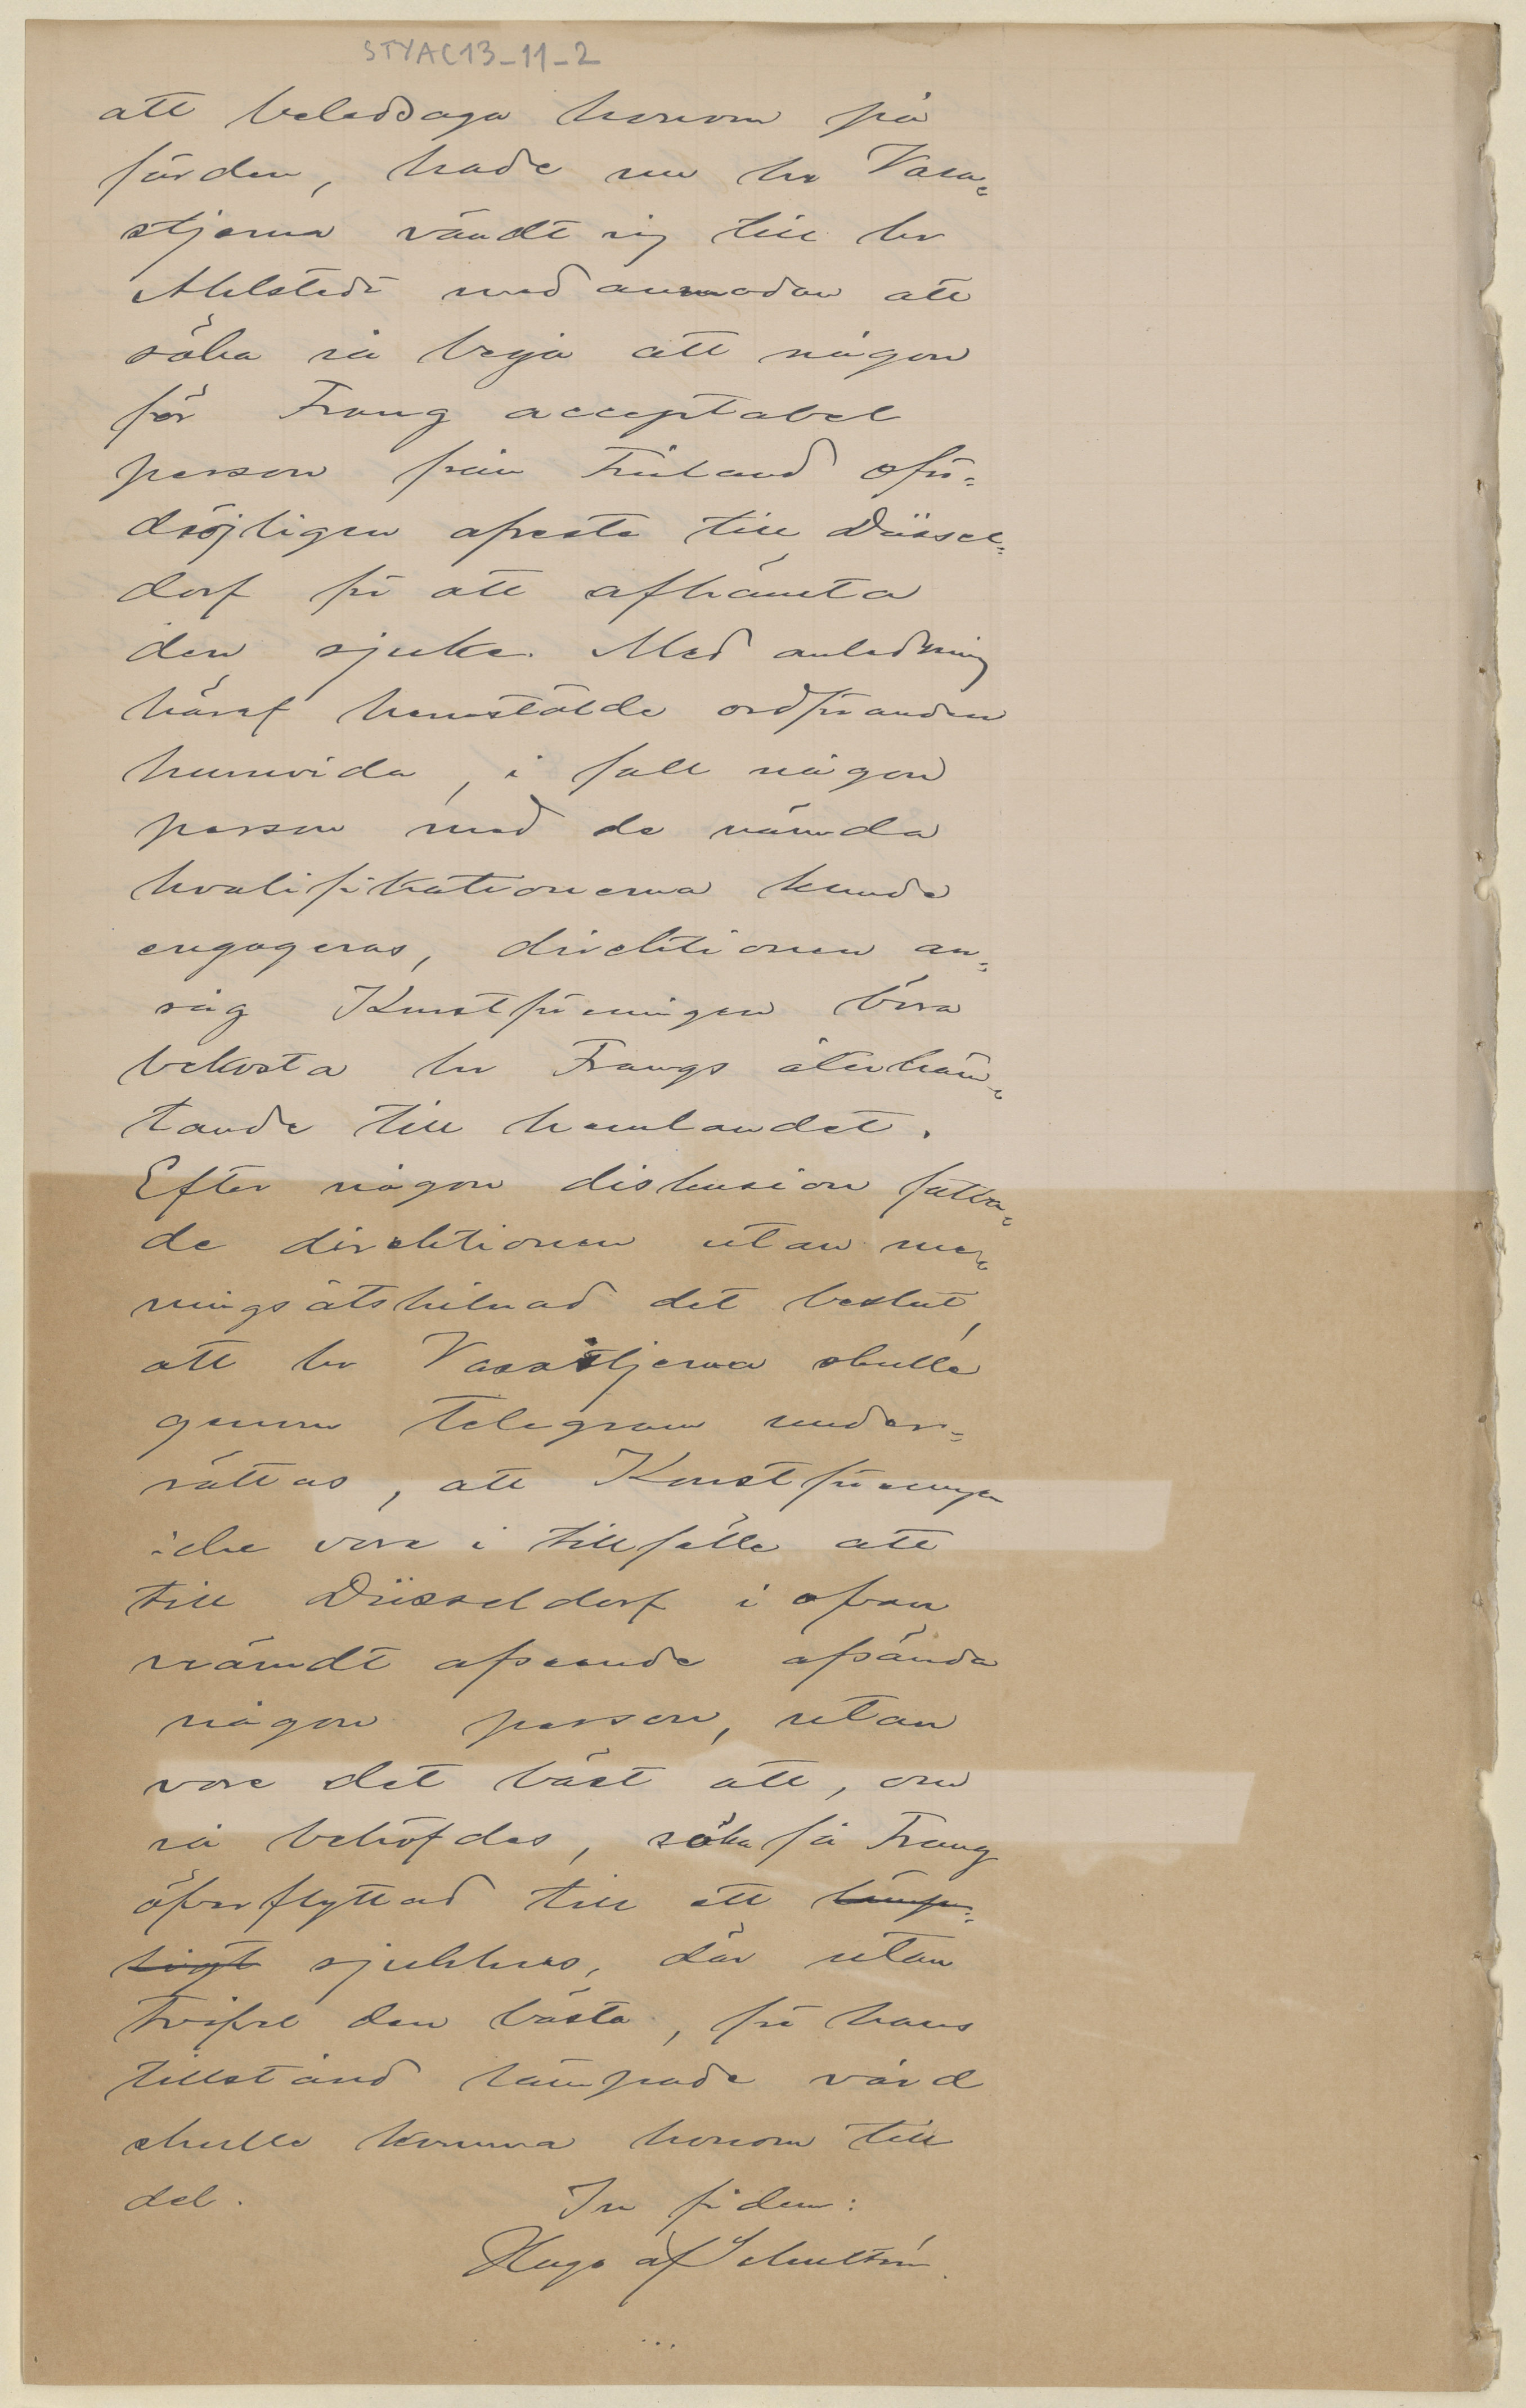 STYAC13_11_2
att beledsaga honom på
färden, hade nu hr Vasa=
stjerna vändt sig till hr
Ahlstedt med anmodan att
söka så begå att någon
för Frang acceptabel
person från Finland oför=
dröjligen afreste till Düssel=
dorf för att afhämta
den sjuke. Med anledning
häraf hemstälde ordföranden
huruvida, i fall någon
person med de nämda
kvalifikationerna kunde
engageras, direktionen an=
såg Konstföreningen böra
bekosta hr Frangs återhäm=
tande till hemlandet.
Efter någon diskusion fatta=
de direktionen utan me=
ningsåtskilnad det beslut,
att hr Vasastjerna skulle
genom telegram under=
rättas, att Konstföreningen
icke vore i tillfälle att
till Düsseldorf i ofvan
nämdt afseende afsända
någon person, utan
vore det bäst att, om
så behöfdes, söka få Frang
öfverflyttad till ett lämp=
ligt sjukhus, där utan
tvifvel den bästa, för hans
tillstånd lämpade vård
skulle komma honom till
del. In fidem:
Hugo af Schultén.